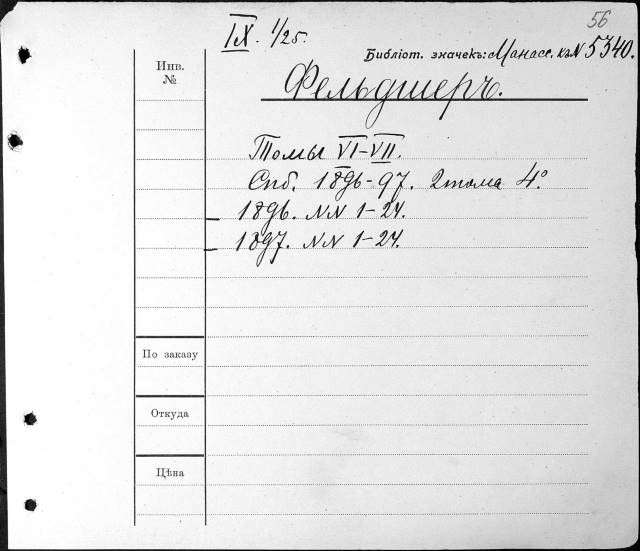 56
IX. 1/25.
Библіот. значекъ: Манасс. къ N 5340.
Инв.
№
Фельдшеръ.
Томы VI-VII.
Спб. 1896-97. 2 тома 4º.
1896. NN 1-24.
1897. NN 1-24.
По заказу
Откуда
Цѣна